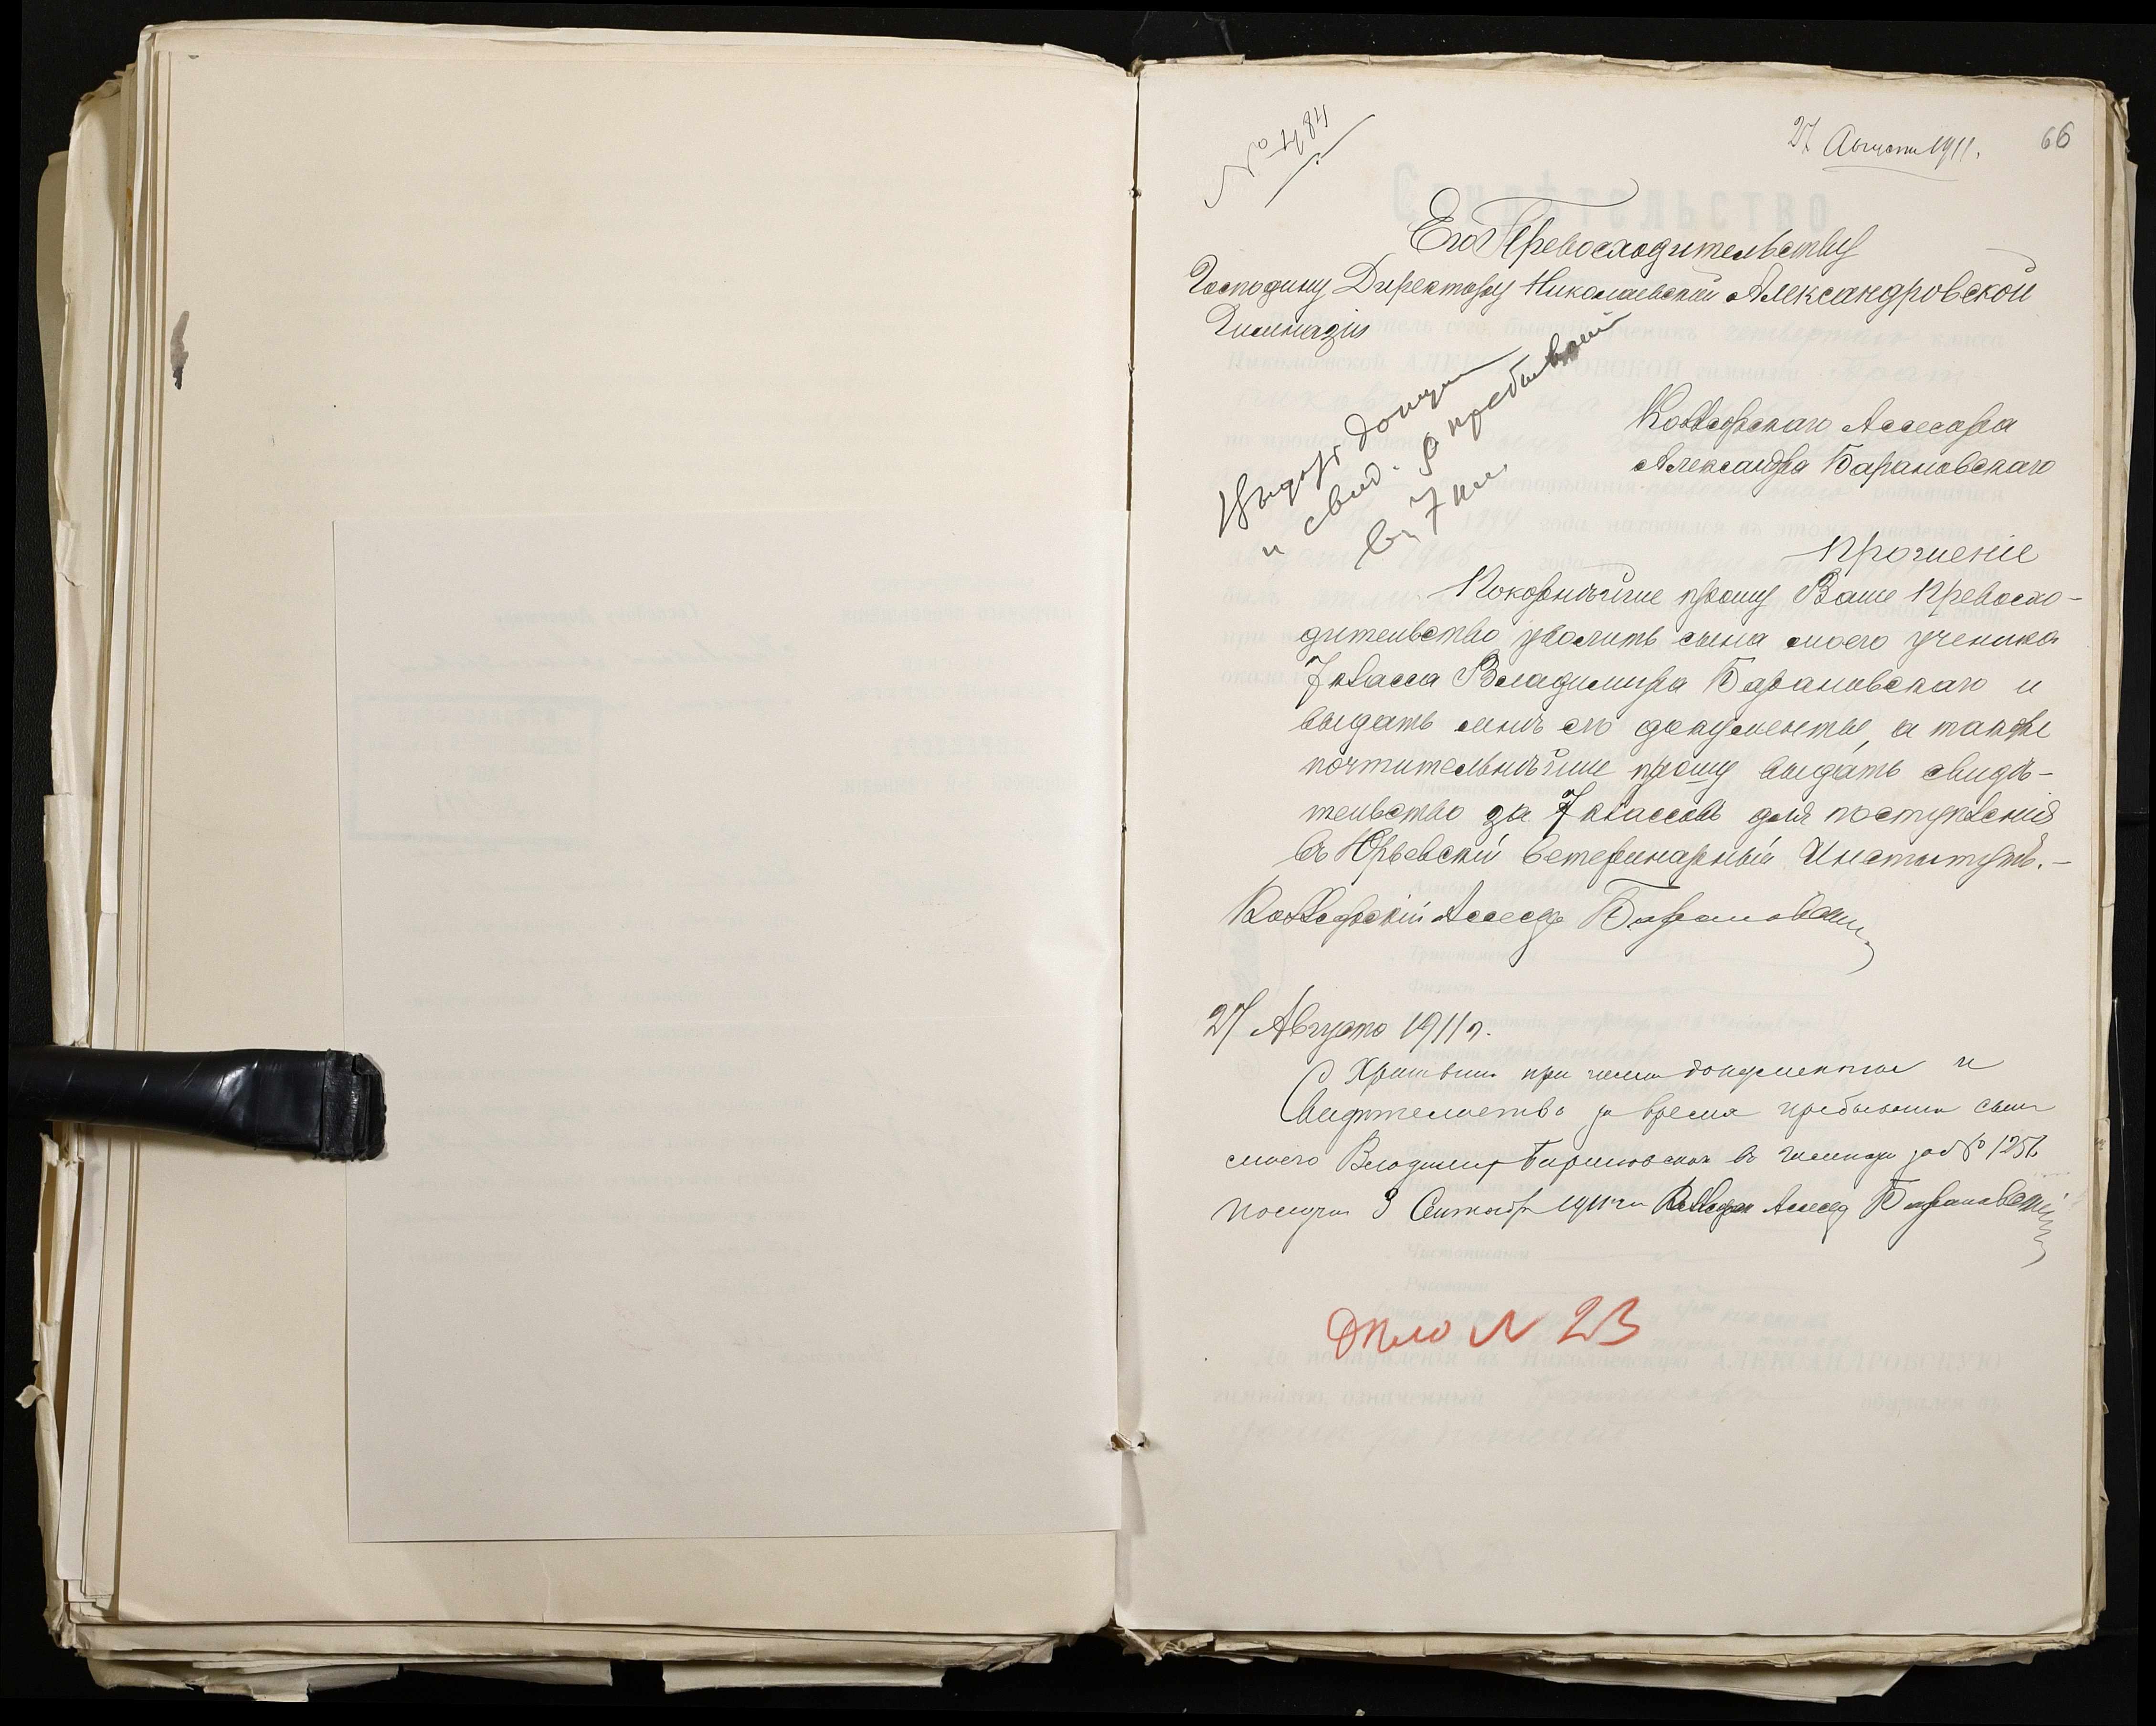 № 484
27 Августа 1911.
66
Его Превосходительству
Господину Директору Николаевской Александровской
Гимназіи
Выдать докум
и свид. о пребываніи
въ 7 кл.
Коллежскаго Асессора
Александра Барановскаго
Прошеніе
Покорнѣйше прошу Ваше Превосхо-
дительство уволить сына моего ученика
7 класса Владимира Барановскаго и
выдать мнѣ его документы, а также
почтительнѣйше прошу выдать свидѣ-
тельство за 7 классовъ для поступленія
въ Юрьевскій ветеринарный Институтъ.-
Коллежскій Асессоръ Барановскій
27 Августа 1911 г.
Хранившіеся при документы и
Свидѣтельство за время пребыванія сына
моего Владимира Барановскаго въ гимназіи за № 1256
получилъ 3 Сентября 1911 г. Коллежскій Асессоръ Барановскій
Дѣло N 23